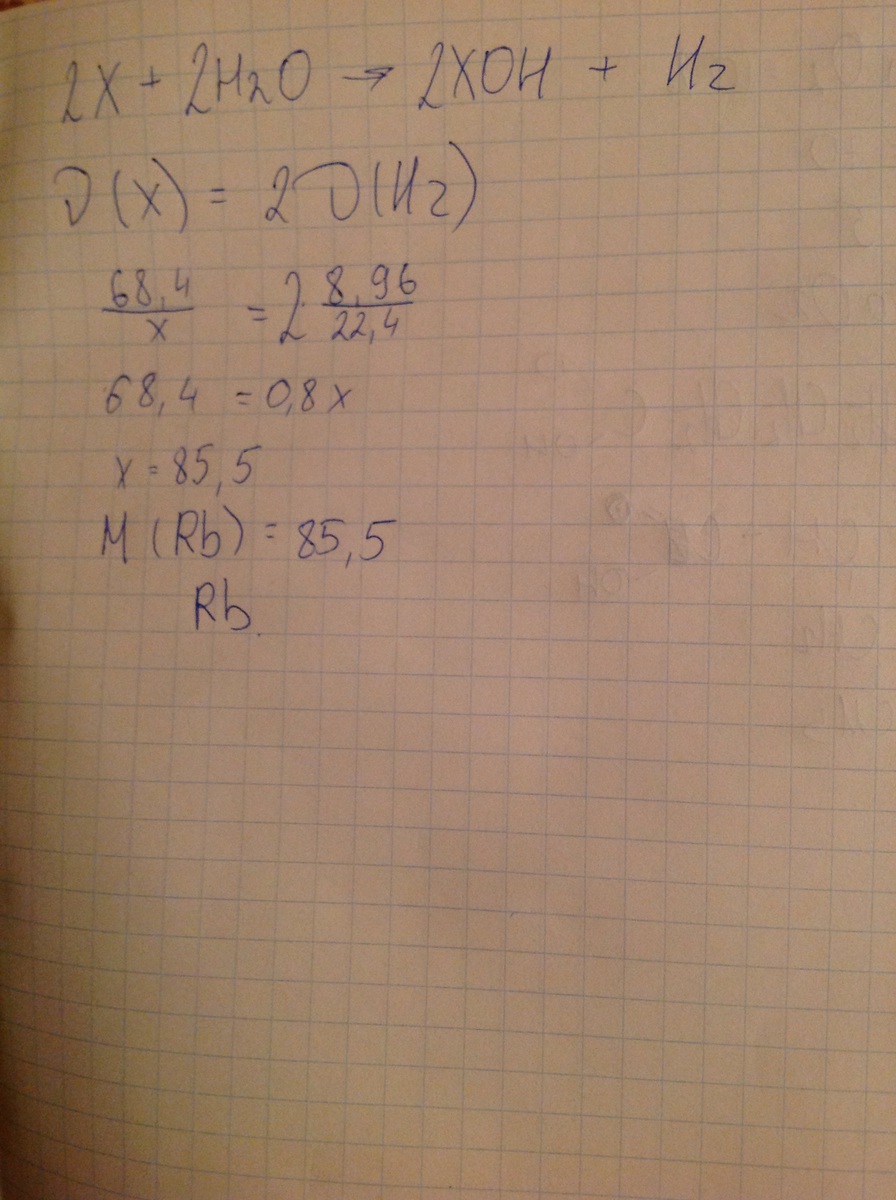 2X + 2H2O → 2XOH + H2
ν(X) = 2ν(H2)
68,4/x = 2·8,96/22,4
68,4 = 0,8x
x = 85,5
M(Rb) = 85,5
Rb.